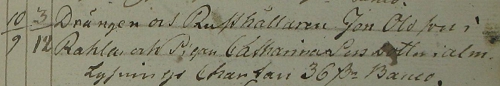 10 3 Drängen och Rusthållaren Jon Olsson i
9 12 och Pigan Catharina Persdotter i alm
Lysnings Charta 36 sk Banco.